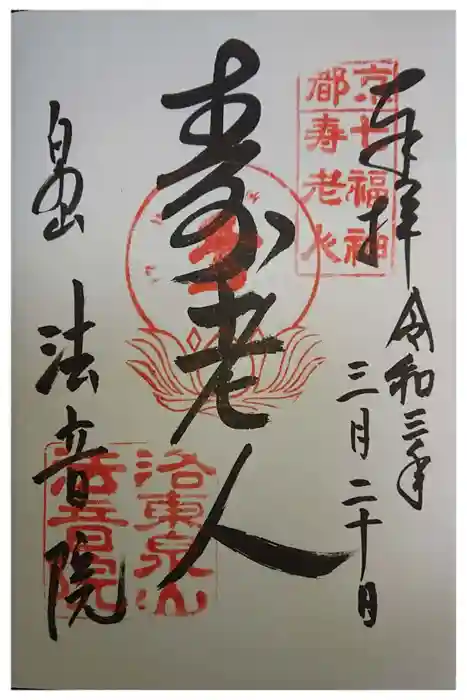 奉拝
令和三年
三月二十日
京都
七福神
寿老人
寿老人
泉山
法音院
洛東泉山
法音院